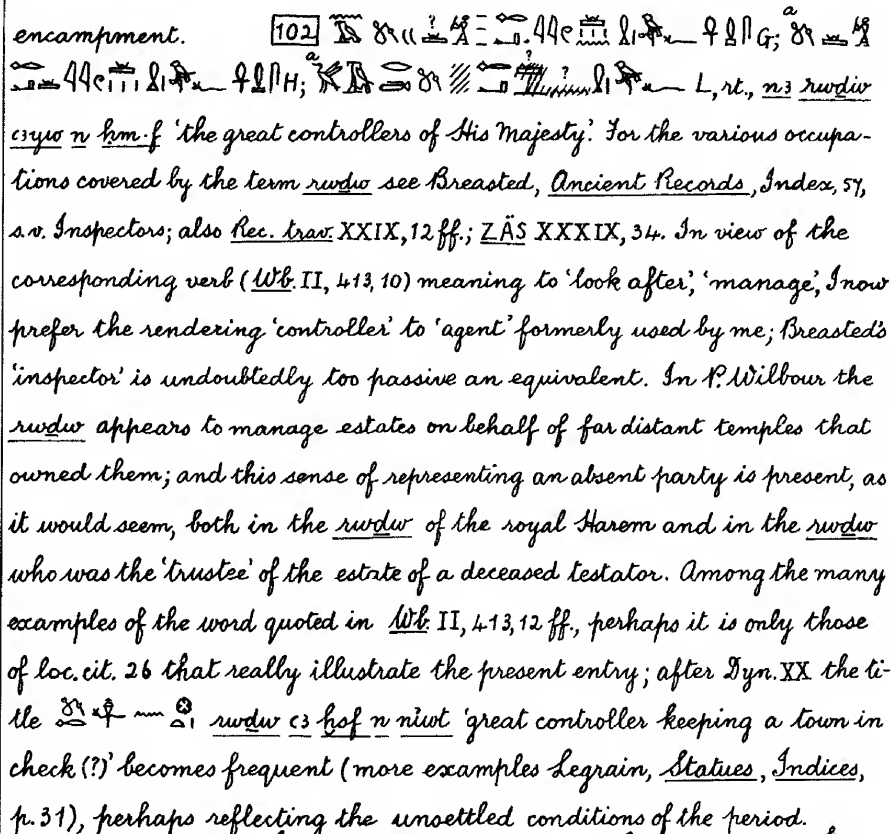 encampment. 102 G;
H; L, rt., n3 rwḏiw
c3yw n ḥm·f ‘the great controllers of His Majesty’. For the various occupa-
tions covered by the term rwḏw see Breasted, Ancient Records, Index, 57,
s.v. Inspectors; also Rec. trav. XXIX, 12 ff.; ZÄS XXXIX, 34. In view of the
corresponding verb (Wb. II, 413, 10) meaning to ‘look after’, ‘manage’, I now
prefer the rendering ‘controller’ to ‘agent’ formerly used by me; Breasted's
‘inspector’ is undoubtedly too passive an equivalent. In P. Wilbour the
rwḏw appears to manage estates on behalf of far distant temples that
owned them; and this sense of representing an absent party is present, as
it would seem, both in the rwḏw of the royal Harem and in the rwḏw
who was the ‘trustee’ of the estate of a deceased testator. Among the many
examples of the word quoted in Wb. II, 413, 12 ff., perhaps it is only those
of loc. cit. 26 that really illustrate the present entry; after Dyn. XX the ti-
tle rwḏw c3 ḫsf n niwt ‘great controller keeping a town in
check (?)’ becomes frequent (more examples Legrain, Statues, Indices,
p. 31), perhaps reflecting the unsettled conditions of the period.